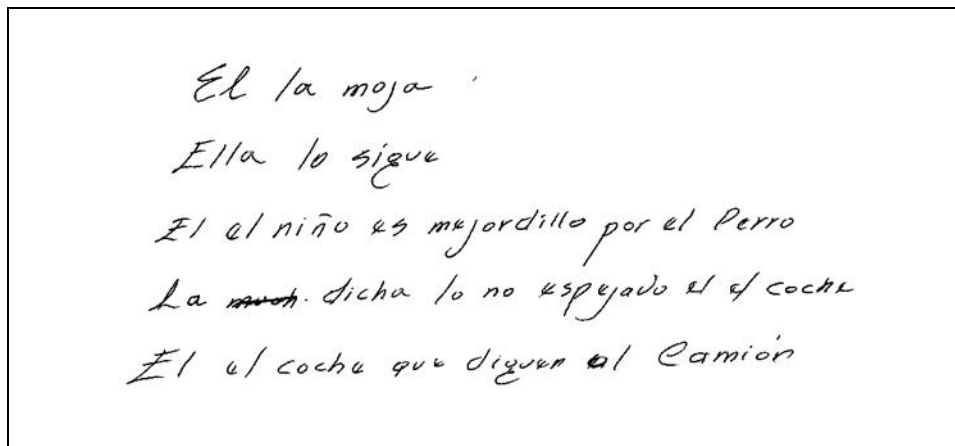 El la moja
Ella lo sigue
El el niño es mejordillo por el Perro
La dicha lo no espejado el el coche
El el coche que diguen al Camión